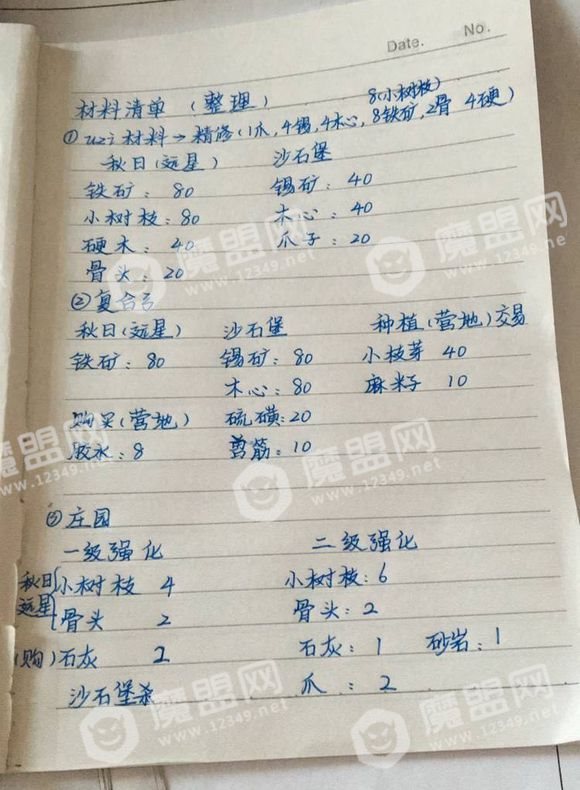 Date. No.
材料清单 (整理) 8(小树枝)
① uzi材料→精修(1爪,4锡,4木心,8铁矿,2骨 4硬)
秋日(远星) 沙石堡
铁矿: 80 锡矿: 40
小树枝: 80 木心: 40
硬木: 40 爪子: 20
骨头: 20
②复合弓
秋日(远星) 沙石堡 种植(营地)交易
铁矿: 80 锡矿: 80 小枝芽 40
木心: 80 麻籽 10
购买(营地) 硫磺:20
胶水: 8 剪筋: 10
③庄园
一级强化 二级强化
秋日 小树枝 4 小树枝: 6
远星 骨头 2 骨头: 2
(购) 石灰 2 石灰: 1 砂岩: 1
沙石堡杀 爪: 2
魔盟网
www.12349.net
魔盟网
www.12349.net
魔盟网
www.12349.net
魔盟网
www.12349.net
魔盟网
www.12349.net
魔盟网
www.12349.net